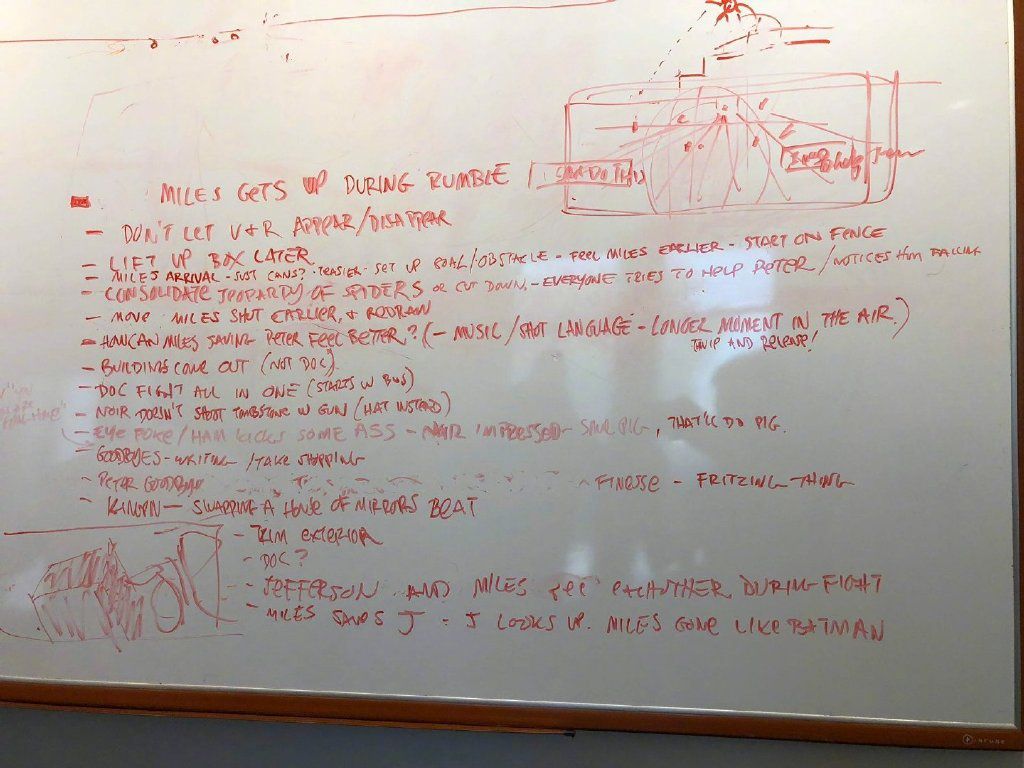 MILES GETS UP DURING RUMBLE
- DON'T LET V+R APPEAR/DISAPPEAR
- LIFT UP BOX LATER
- MILES ARRIVAL - JUST CANS? - TEASIER - SET UP GOAL/OBSTACLE - FEEL MILES EARLIER - START ON FENCE
- CONSOLIDATE JEOPARDY OF SPIDERS OR CUT DOWN. - EVERYONE TRIES TO HELP PETER / NOTICES HIM FALLING
- MOVE MILES SHOT EARLIER, + REDRAW
- HOW CAN MILES SAVING PETER FEEL BETTER? (- MUSIC/SHOT LANGUAGE - LONGER MOMENT IN THE AIR.)
THWIP AND RELEASE!
- BUILDINGS COME OUT (NOT DOC).
- DOC FIGHT ALL IN ONE (STARTS W BUS)
- NOIR DOESN'T SHOOT TOMBSTONE W GUN (HAT INSTEAD)
- EYE POKE/HAM KICKS SOME ASS - NOIR IMPRESSED - SOME PIG, THAT'LL DO PIG.
- GOODBYES - WRITING / TAKE SHAPPING
- PETER GOODBYE
- FINESSE - FRITZING THING
- KINGPIN - SWAPPING A HOUSE OF MIRRORS BEAT
- TRIM EXTERIOR
- DOC?
- JEFFERSON AND MILES SEE EACHOTHER DURING FIGHT
- MILES SAVES J - J LOOKS UP. MILES GONE LIKE BATMAN